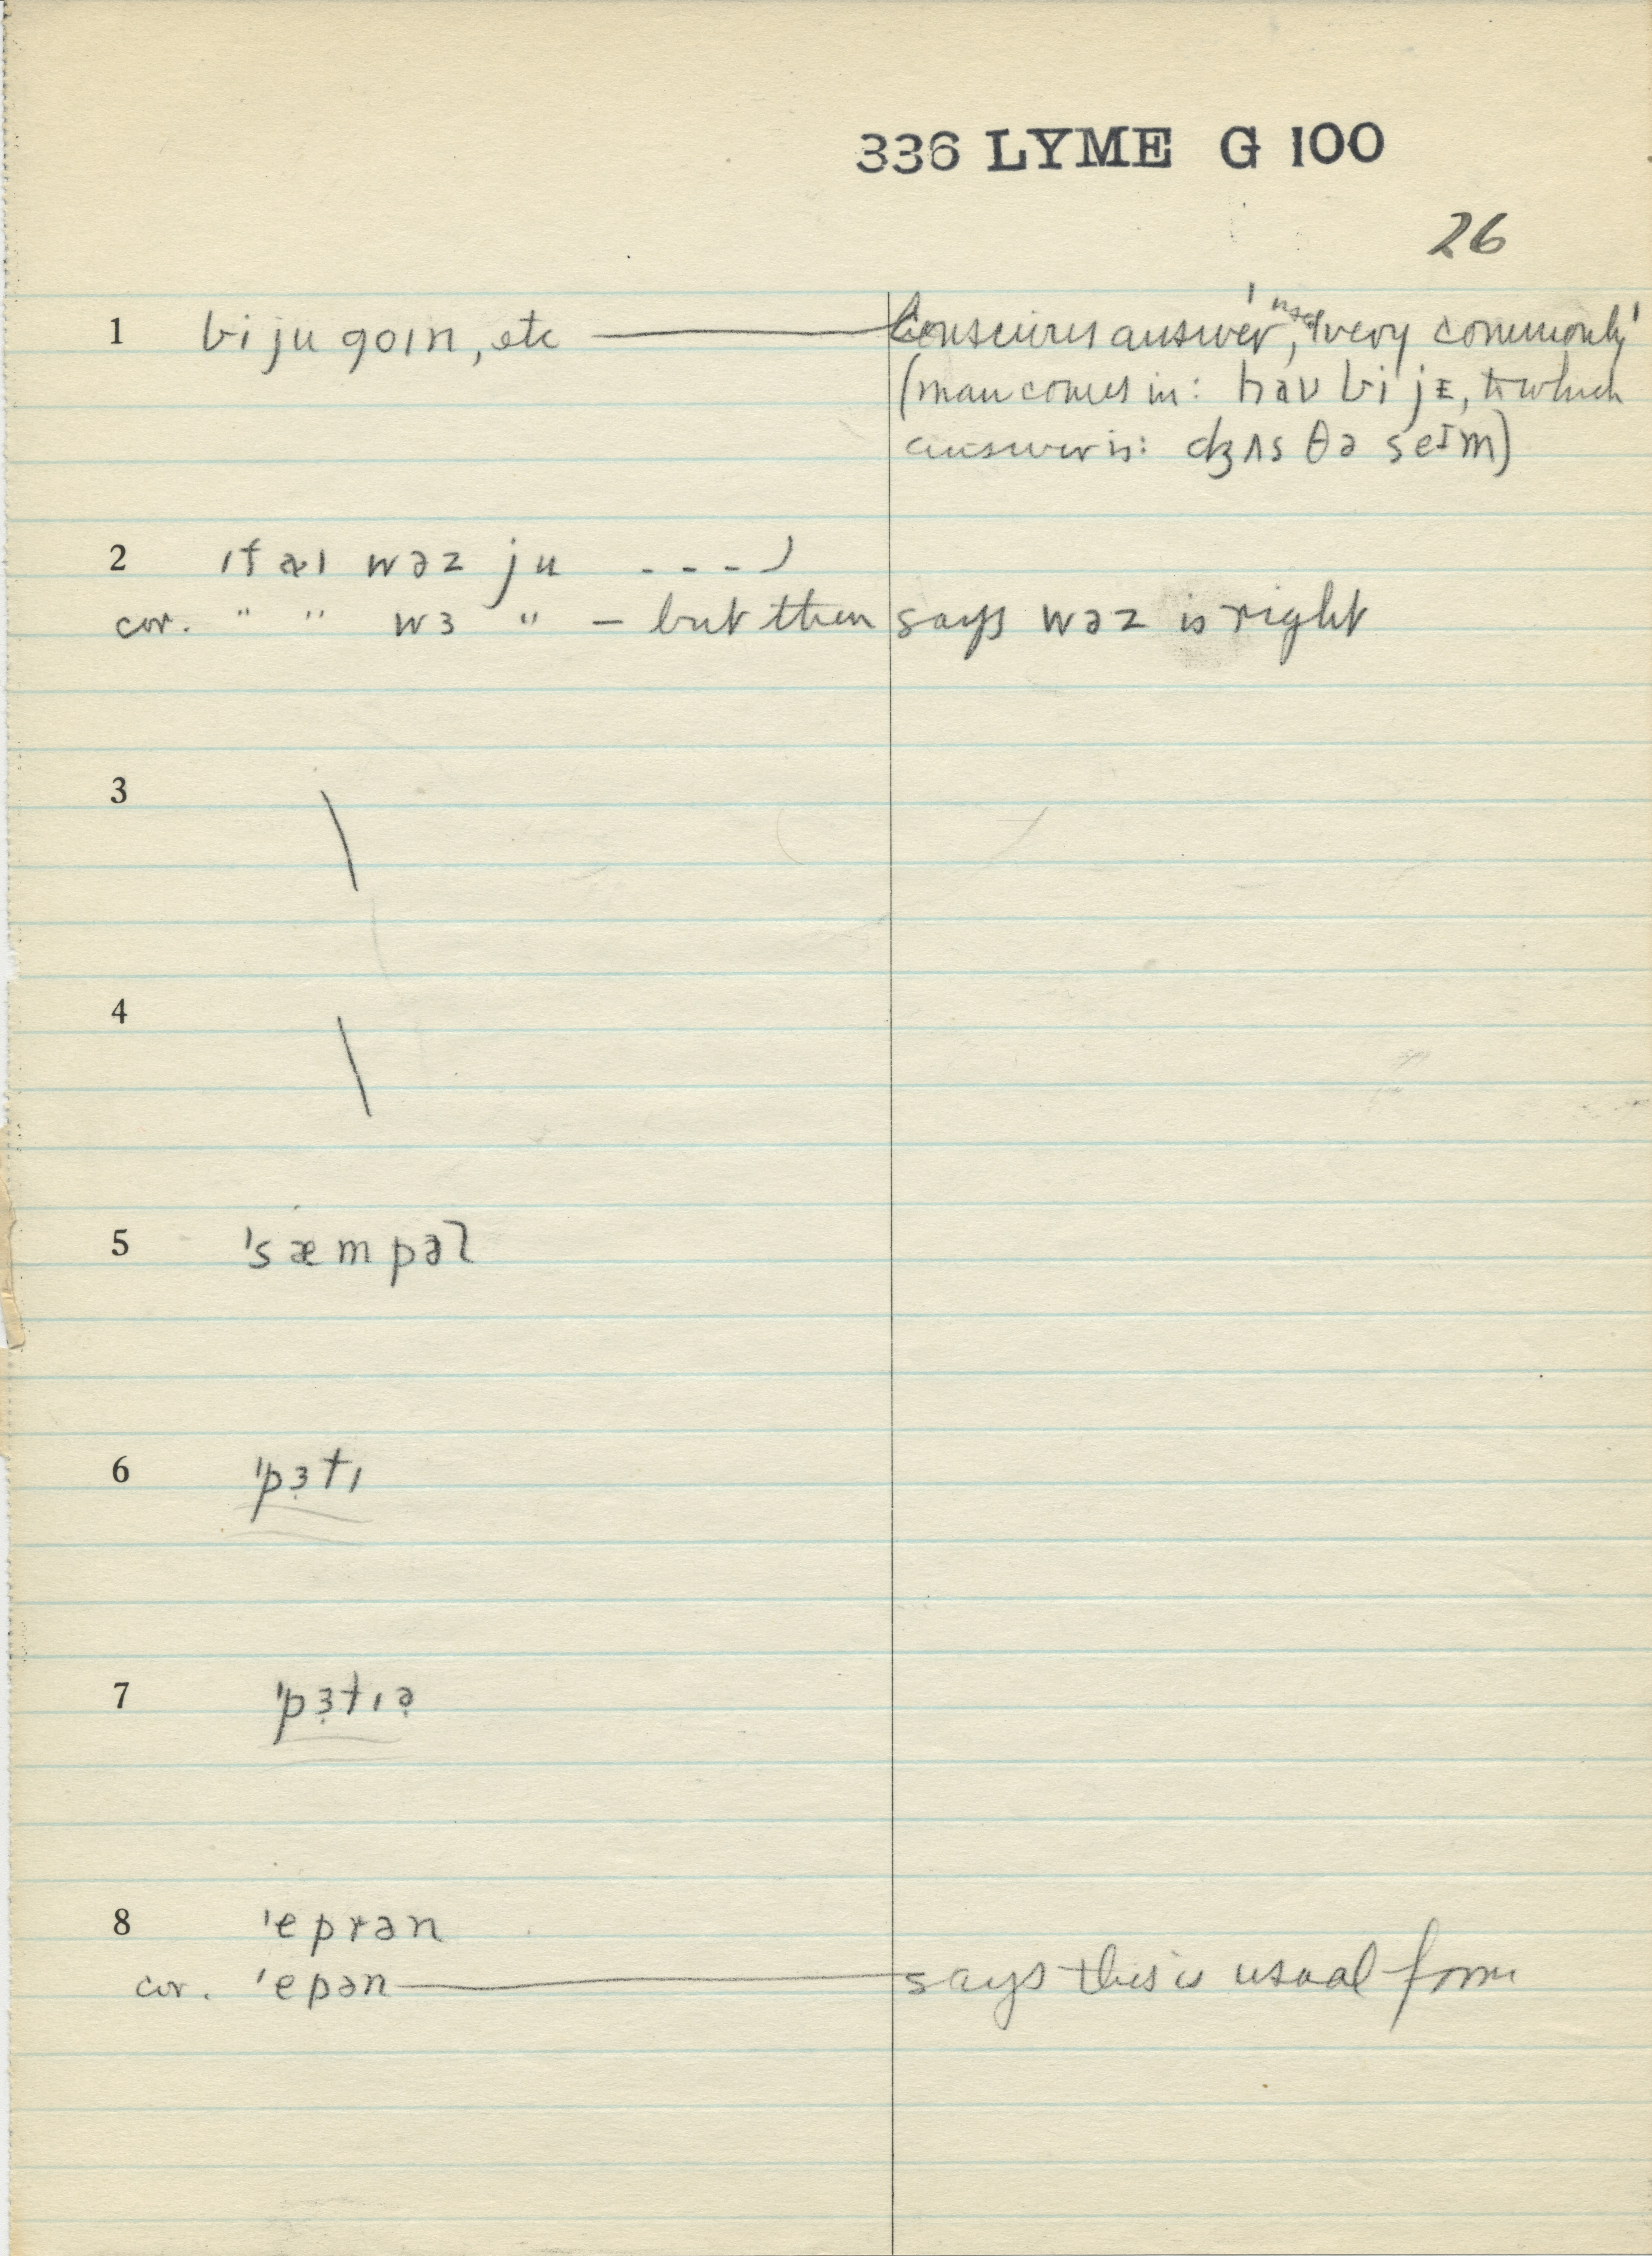 336 LYME G 100
26
1 bi ju goɪn, etc — Conscious answer, 'used very commonly'
(man comes in: haʊ bi jᵻ, to which
answer is: ʤʌs θə seɪm)
2 ɪf aɪ wəz ju - - - -)
cor. " " wɜ " — but then says wəz is right
3 \
4 \
5 'sæmpəl
6 'pɜ̣tɪ
7 'pɜ̣tɪə̣
8 'eprən
cor. 'epən — says this is usual form